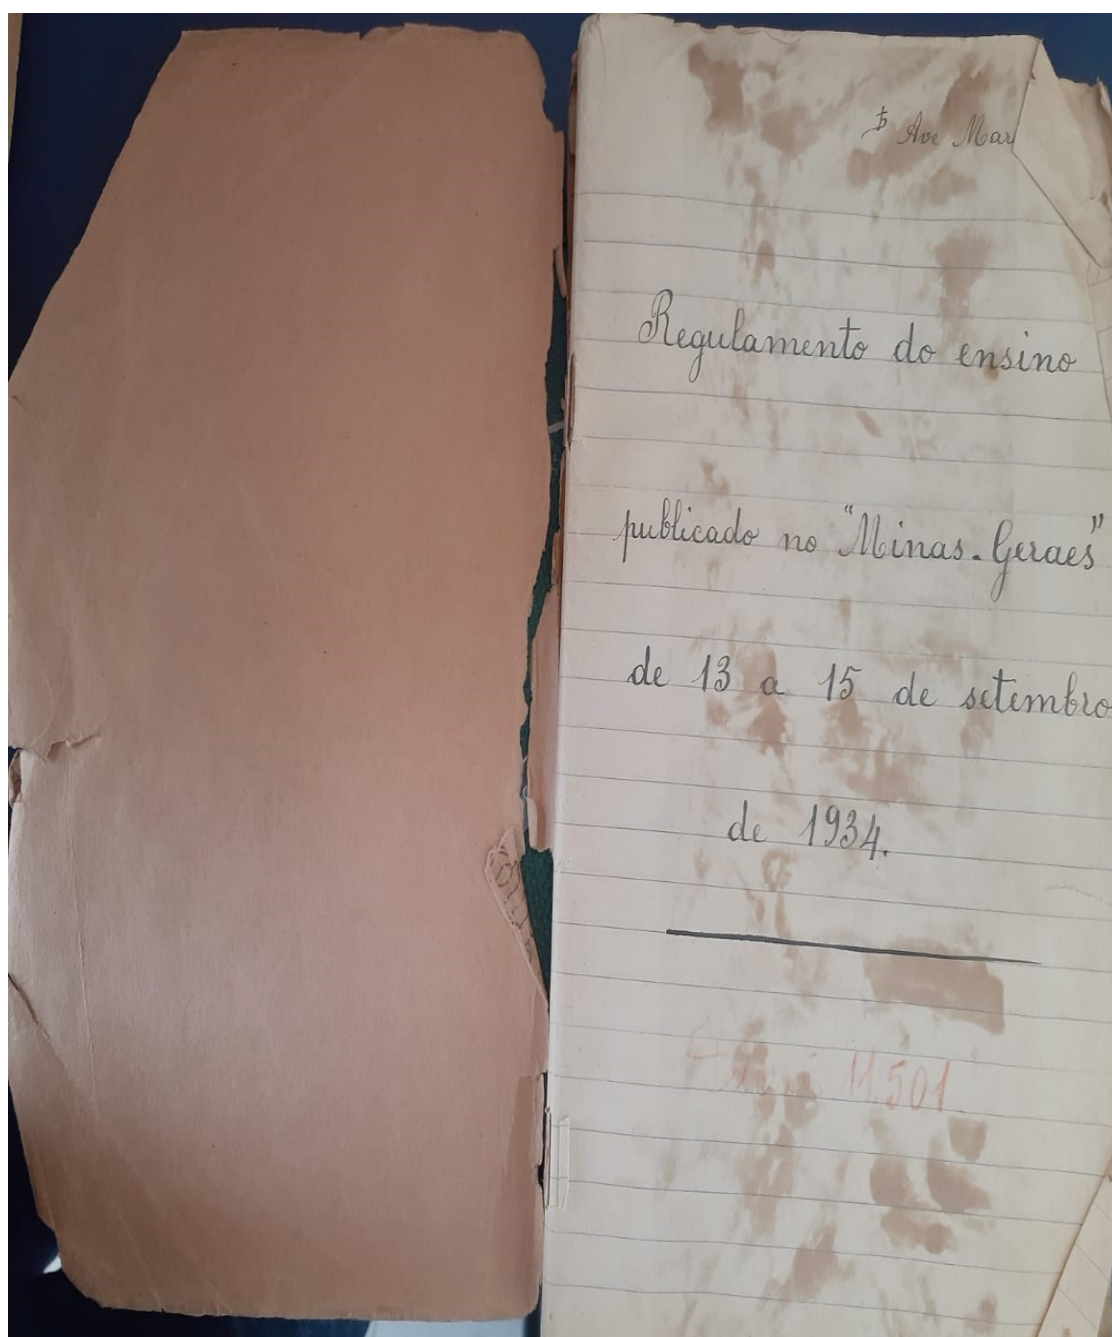 Ave Mar
Regulamento do ensino
publicado no "Minas-Geraes"
de 13 a 15 de setembro
de 1934.
11.501